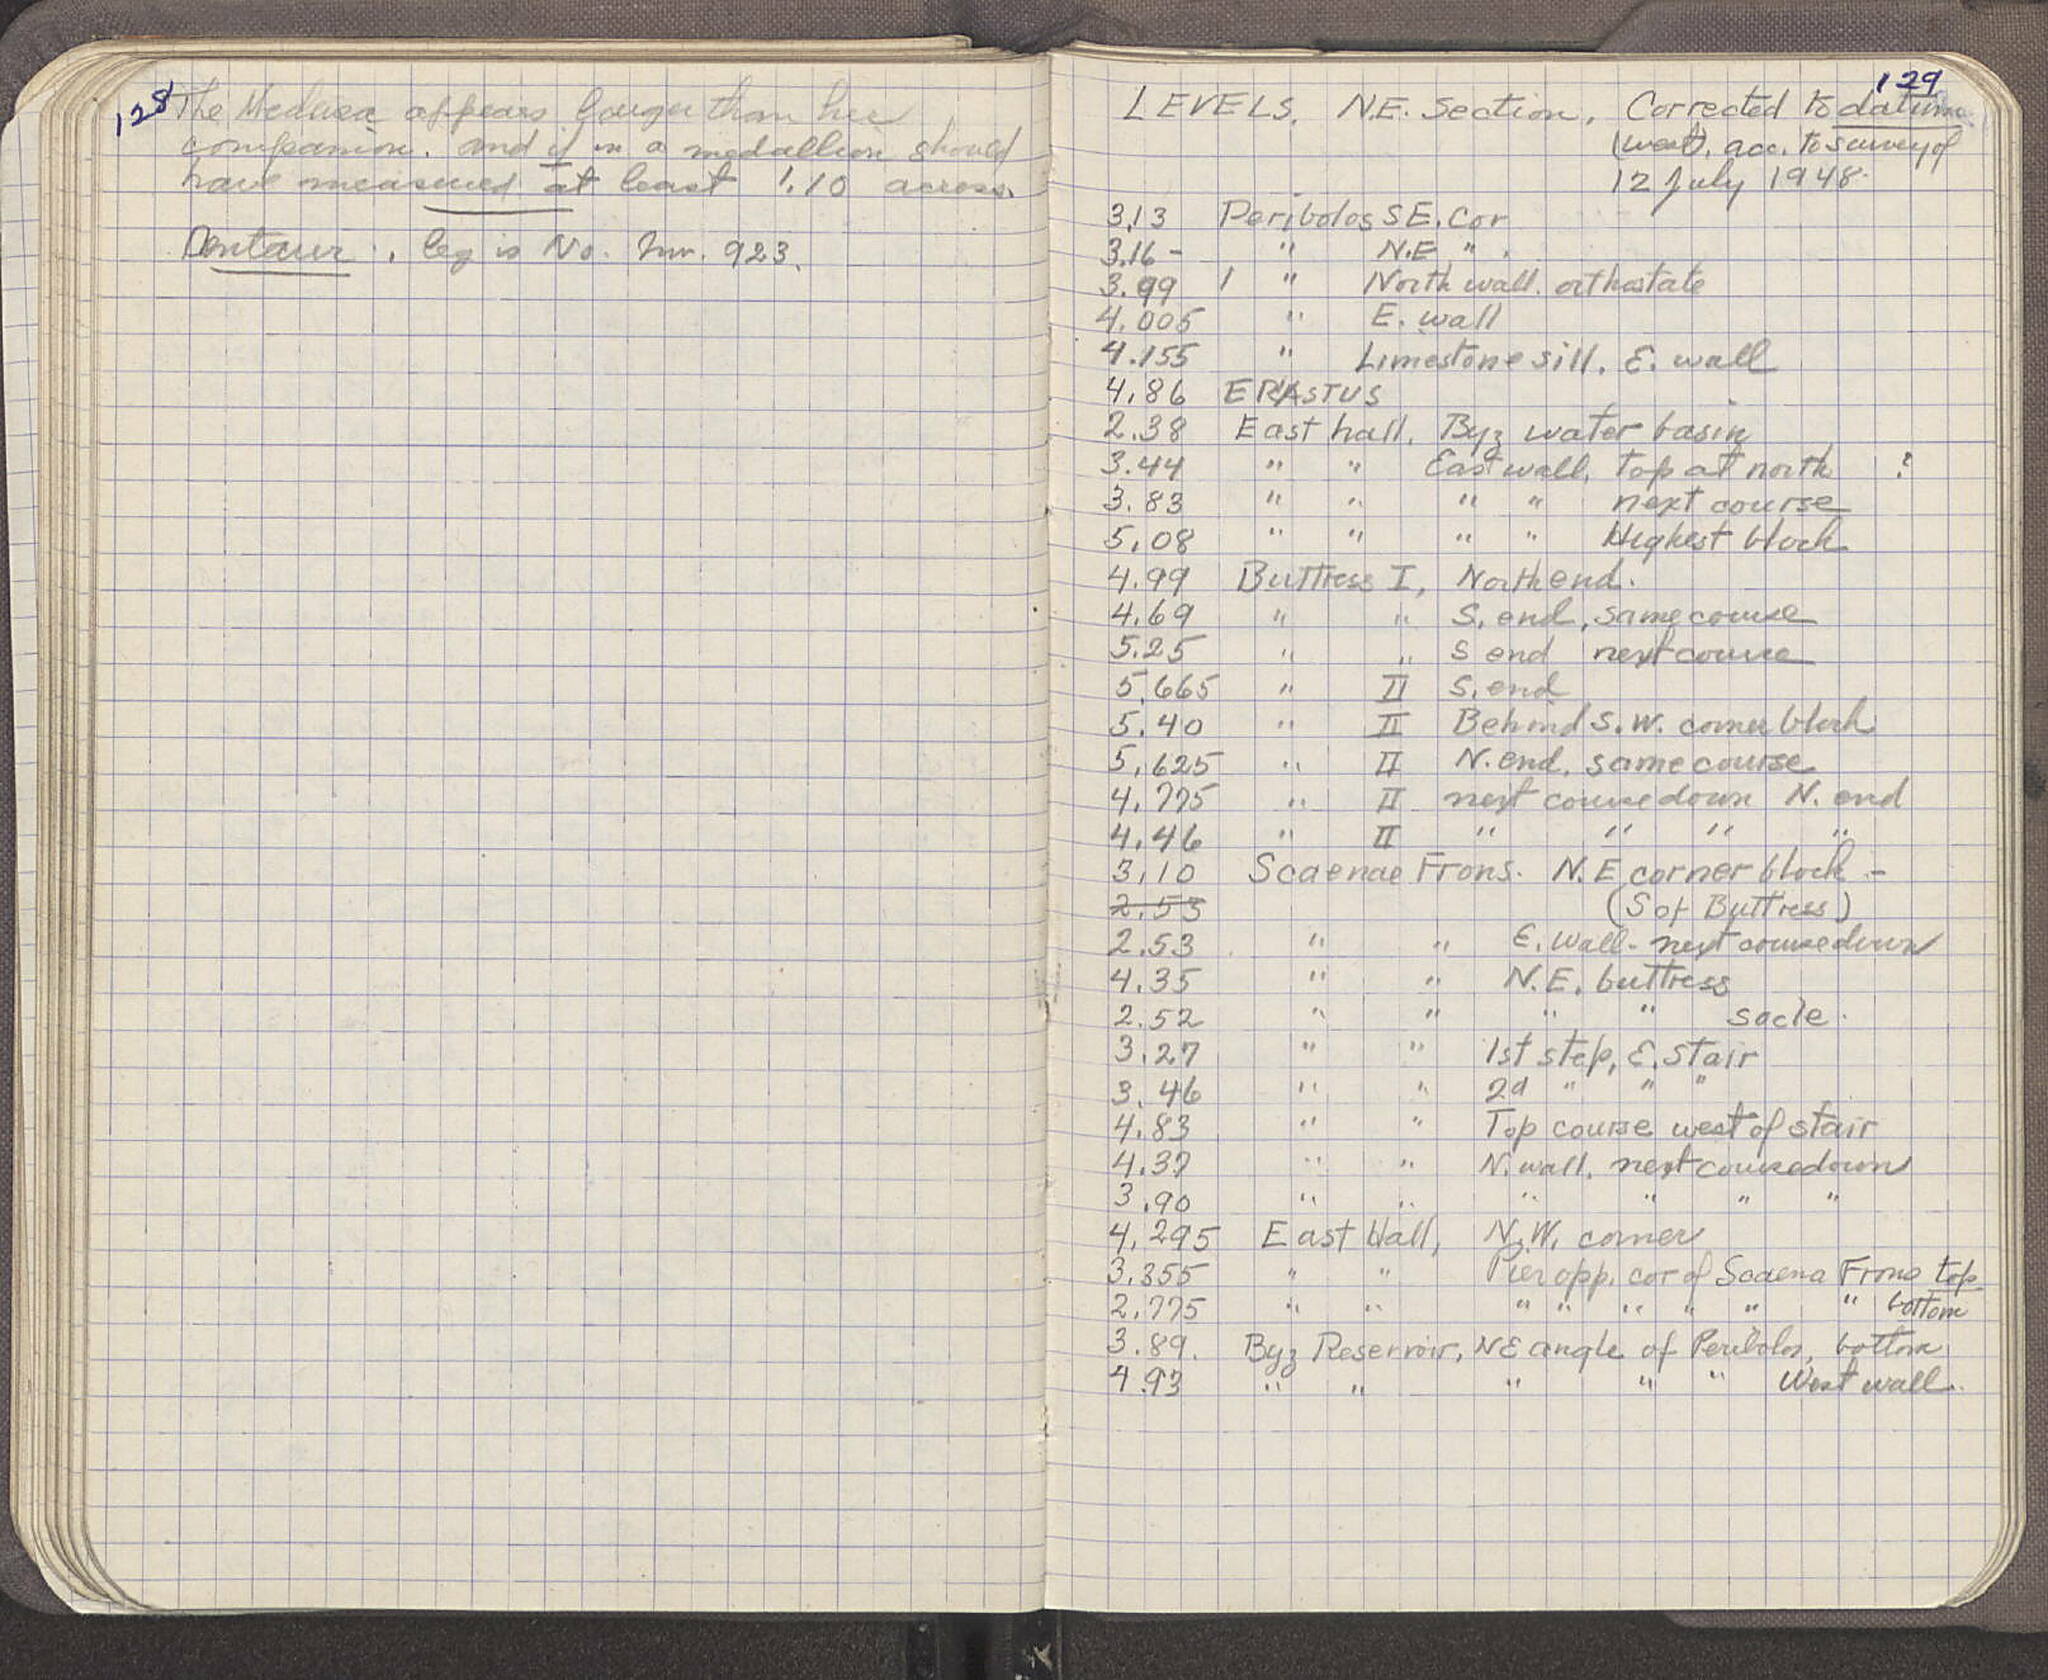 128
The Medusa appears larger than her
companion. and if in a medallion should
have measured at least 1.10 across.
Centaur. leg is No. Inv. 923.
129
LEVELS. N.E. Section. Corrected to datum
(west). acc. to survey of
12 July 1948.
3.13 Peribolos SE. Cor
3.16 - " N.E " .
3.99 / " North wall. orthostate
4.005 " E. wall
4.155 " Limestone sill. E. wall
4.86 ERASTUS
2.38 East hall. Byz water basin
3.44 " " East wall, top at north ?
3.83 " " " " next course
5.08 " " " " Highest block
4.99 Buttress I, North end.
4.69 " " S. end, same course
5.25 " " S end next course
5.665 " II S. end
5.40 " II Behind S.W. corner block
5.625 " II N. end. same course
4.775 " II next course down N. end
4.46 " II " " " "
3.10 Scaenae Frons. N.E corner block -
2.53 (S of Buttress)
2.53 " " E. wall - next course down
4.35 " " N.E. buttress
2.52 " " " " socle.
3.27 " " 1st step, E. stair
3.46 " " 2d " " "
4.83 " " Top course west of stair
4.37 " " N. wall. next course down
3.90 " " " " " "
4.295 East Hall, N.W. corner
3.355 " " Pier opp. cor of Scaena Frons top
2.775 " " " " " " " " bottom
3.89. Byz Reservoir, NE angle of Peribolos, bottom
4.93 " " " " " West wall.